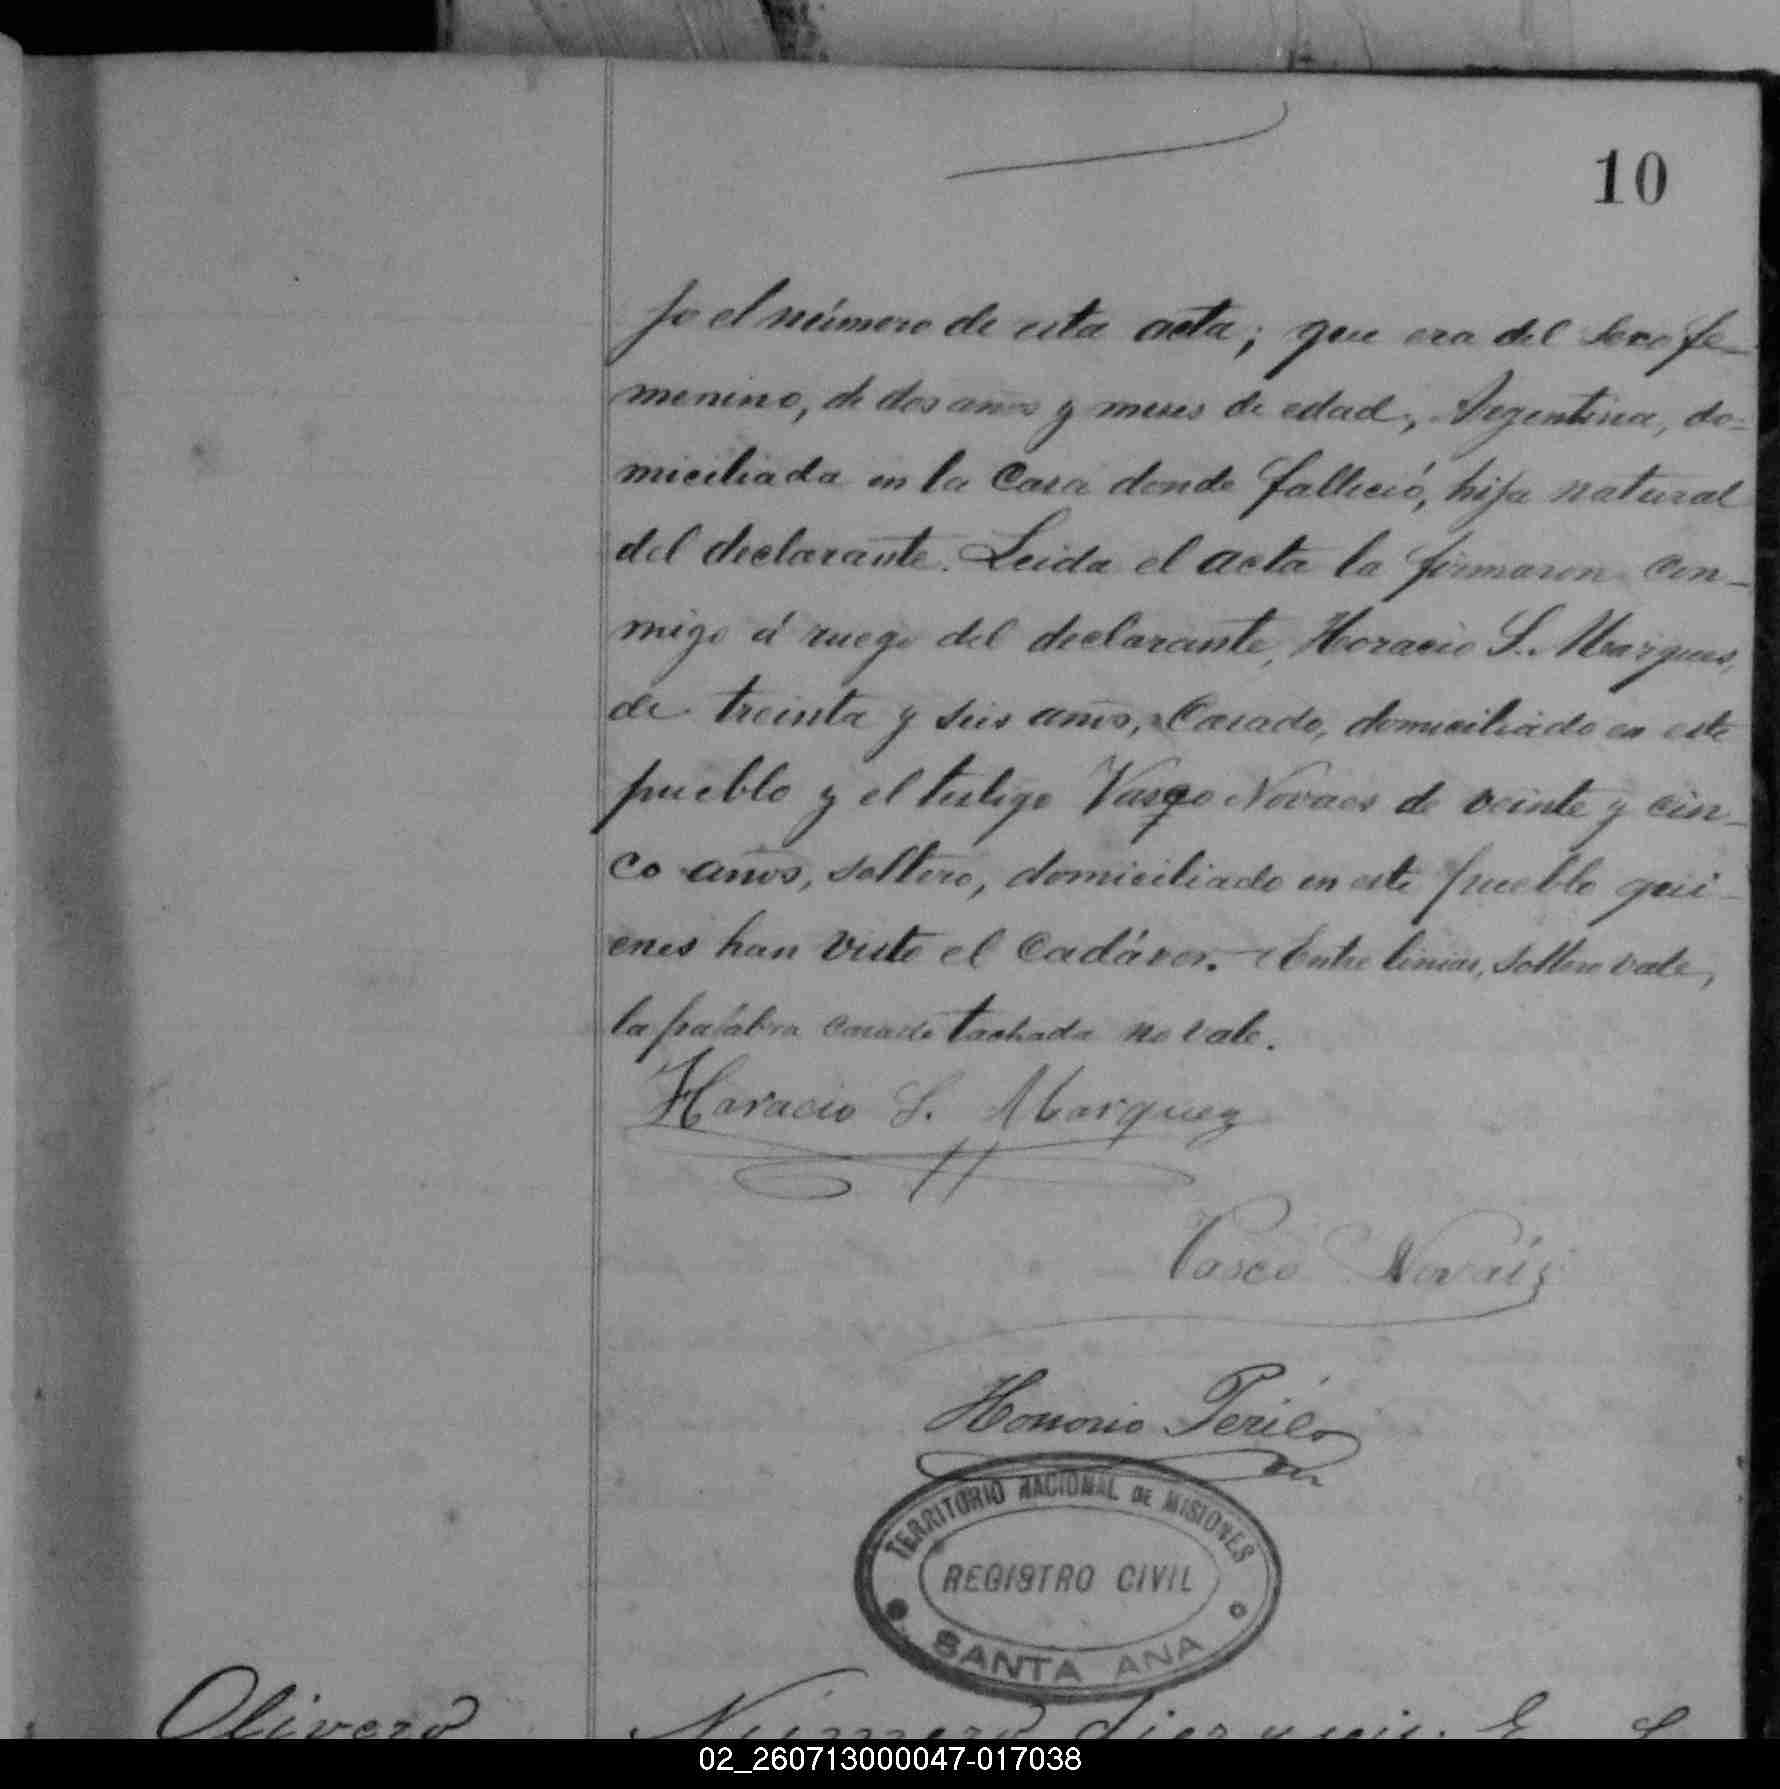 10
jo el número de esta acta; que era del sexo fe-
menino, de dos años y meses de edad, Argentina, do-
miciliada en la casa donde falleció, hija natural
del declarante. Leida el acta la firmaron con-
migo á ruego del declarante, Horacio S. Marques,
de treinta y seis años, casado, domiciliado en este
pueblo y el testigo Vasco Novaes de veinte y cin-
co años, soltero, domiciliado en este pueblo qui-
enes han visto el cadáver. Entre linias, soltero vale,
la palabra casado tachada no vale.
Horacio S. Marquez
Vasco Novais
Honorio
TERRITORIO NACIONAL DE MISIONES
REGISTRO CIVIL
SANTA ANA
Olivero
Número diez y seis. E
02_260713000047-017038